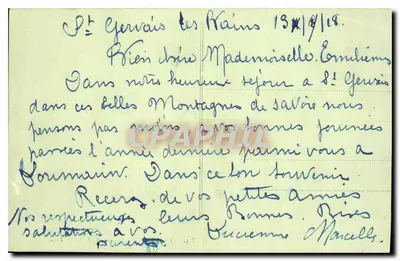 St Gervais les Bains 13/9/28.
Bien chère Mademoiselle Emilienne
Dans notre heureux séjour a St Gervais
dans ces belles Montagnes de Savoie nous
pensons pas moins a vos bonnes journées
passées l'année dernière parmi vous a
Dans ce bon souvenir
Recevez de vos petites amies
leurs Bonnes Bises
Nos respectueuses
salutations a vos
parents
Lucienne Marcelle